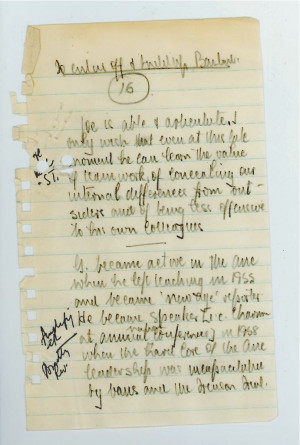 (16)
He is able & articulate. I
only wish that even at this late
moment he can learn the value
of teamwork, of concealing our
internal differences from out-
siders and of being less offensive
to his own colleagues
G. became active in the ANC
when he left teaching in 1955
and became 'New Age' reporter
He became speaker i.e. Chairm
at annual conference in 1958
when the hard core of the ANC
leadership was incapacitated
by bans and the Treason Trial.